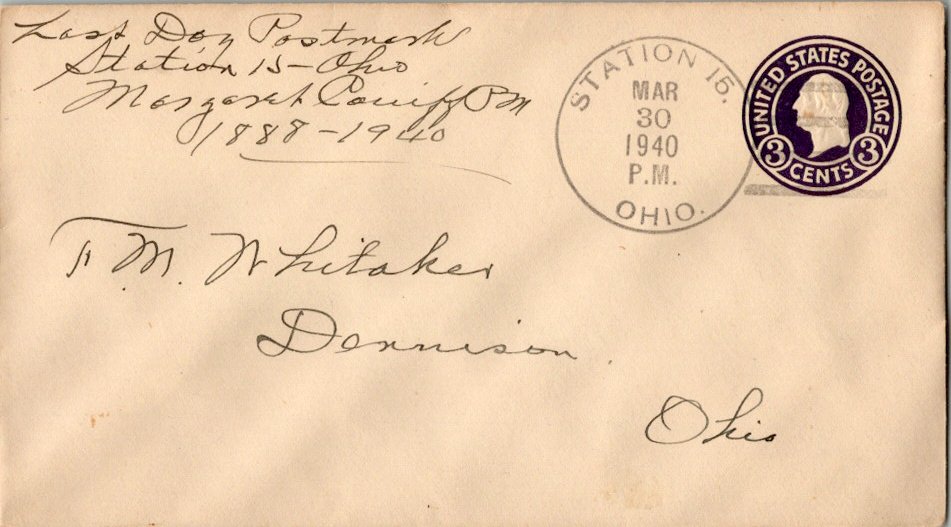 Last Day Postmark
Station 15 - Ohio
Margaret PM
1888-1940
STATION 15.
MAR
30
1940
P.M.
OHIO.
UNITED STATES POSTAGE
3 CENTS 3
F. M. Whitaker
Dennison
Ohio